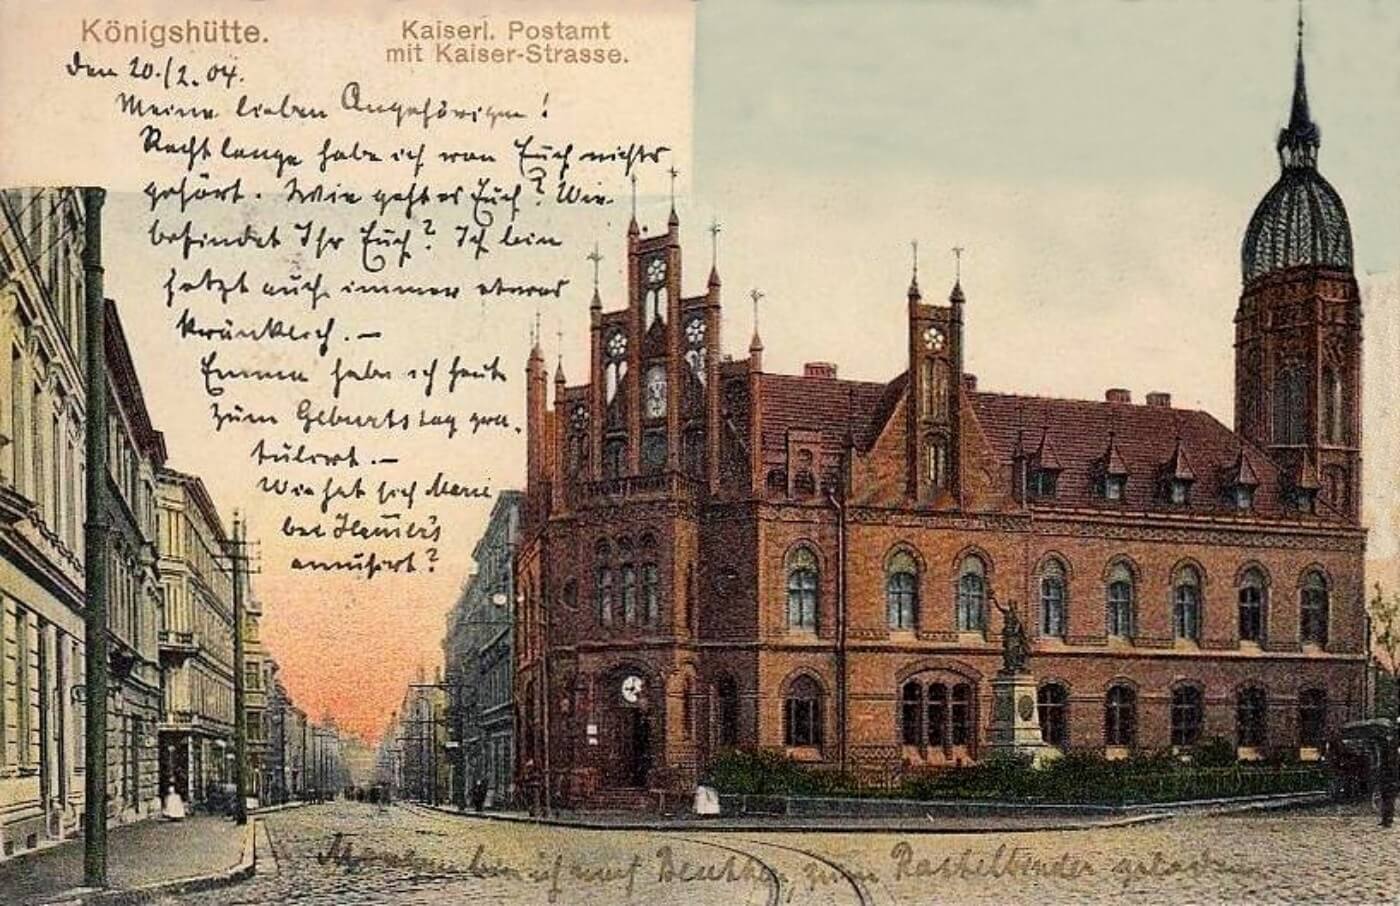 Königshütte.
Kaiserl. Postamt
mit Kaiser-Strasse.
Den 20./2.04.
Meine lieben Angehörigen!
Recht lange habe ich von Euch nichts
gehört. Wie geht es Euch? Wie
befindet Ihr Euch? Ich bin
jetzt auch immer etwas
kränklich. —
Emma habe ich heute
zum Geburtstag gra-
tuliert. —
Wie hat sich Marie
bei
amüsirt?
Morgen bin ich nach Beuthen zum geladen